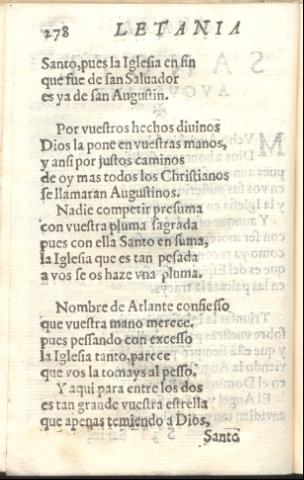 278 LETANIA
Santo, pues la Iglesia en fin
que fue de san Saluador
es ya de san Augustin.
Por vuestros hechos diuinos
Dios la pone en vuestras manos,
y ansi por justos caminos
de oy mas todos los Christianos
se llamaran Augustinos.
Nadie competir presuma
con vuestra pluma sagrada
pues con ella Santo en suma,
la Iglesia que es tan pesada
a vos se os haze vna pluma.
Nombre de Atlante confiesso
que vuestra mano merece.
pues pessando con excesso
la Iglesia tanto, parece
que vos la tomays al pesso.
Y aqui para entre los dos
es tan grande vuestra estrella
que apenas temiendo a Dios,
Santo